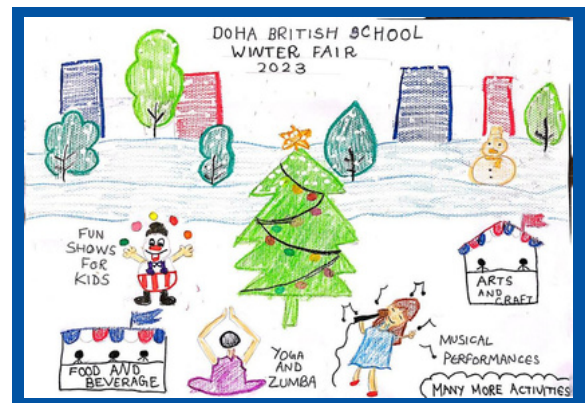 DOHA BRITISH SCHOOL
WINTER FAIR
2023
FUN
SHOWS
FOR
KIDS
ARTS
AND
CRAFT
FOOD AND
BEVERAGE
YOGA
AND
ZUMBA
MUSICAL
PERFORMANCES
MANY MORE ACTIVITIES